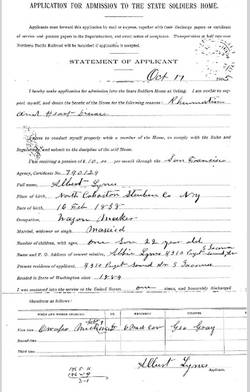 APPLICATION FOR ADMISSION TO THE STATE SOLDIERS HOME.
Applicants must forward this application by mail or express, together with their discharge papers or certificate
of service and pension papers to the Superintendent, and await notice of acceptance. Transportation at half rate over
Northern Pacific Railroad will be furnished if application is accepted.
STATEMENT OF APPLICANT
Oct 17 5
I hereby make application for admission into the State Soldiers Home at Orting. I am unable to sup-
port myself, and desire the benefit of the Home for the following reasons: Rheumatism
and Heart
to conduct myself properly while a member of the Home, to comply with the Rules and
Regulations, and submit to the discipline of the said Home.
I am receiving a pension of $ 10.00 per month through the San Francisco
Agency, Certificate No. 790129
Full name, Albert Lynes
Place of birth, North Cohocton Steuben Co NY
Date of birth, 16 Feb 1838
Occupation, Wagon Maker
Married, widower or single, Married
Number of children, with ages, one Son 22 year old
Name and P. O. Address of nearest relative, Lynes 4310 Puget Sound Ave S Tacoma
Present residence of applicant, 4310 Puget Sound Av S Tacoma
Resided in State of Washington since 1889
I was mustered into the service of the United States one times, and Honorably Discharged
therefrom as follows:
First time Owosso Michigan 6 Mich Cav Geo Gray
Albert Lynes